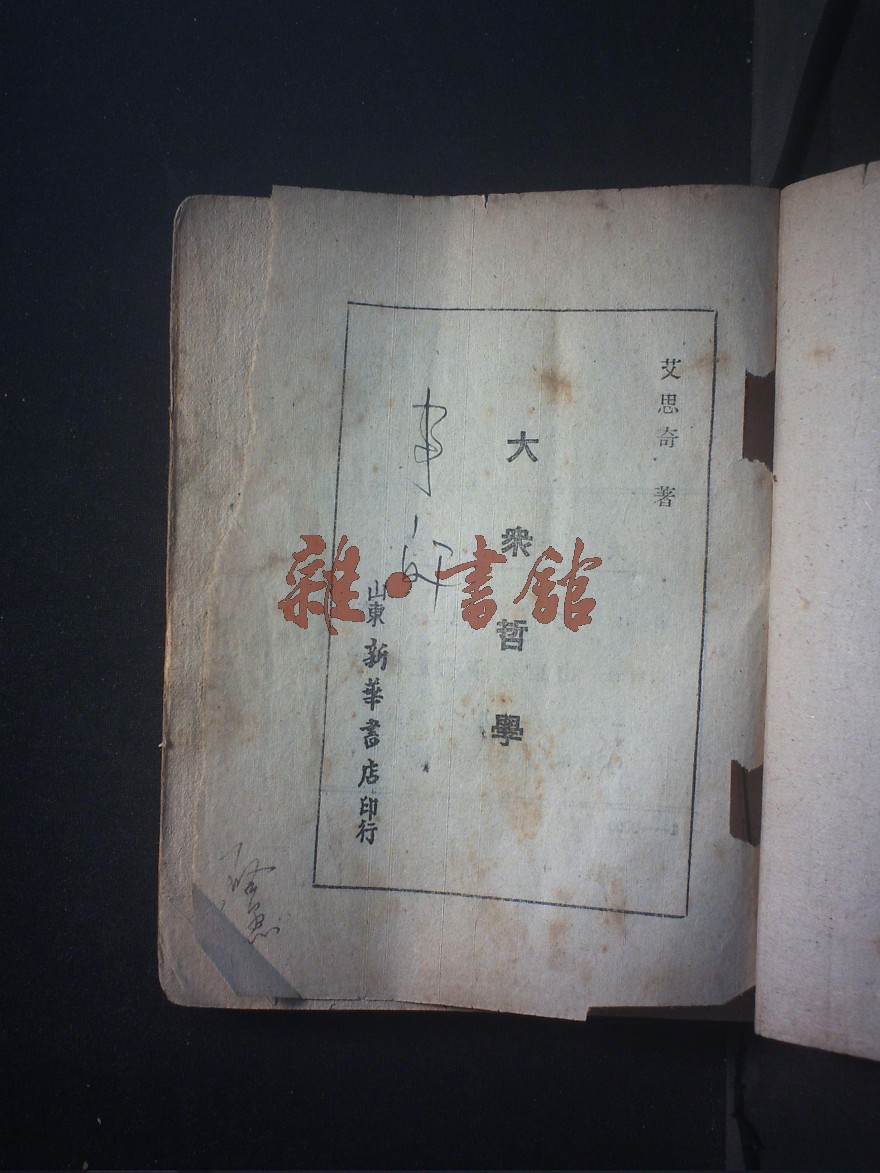 艾思奇 著
大衆哲學
山東新華書店印行
雜·書館